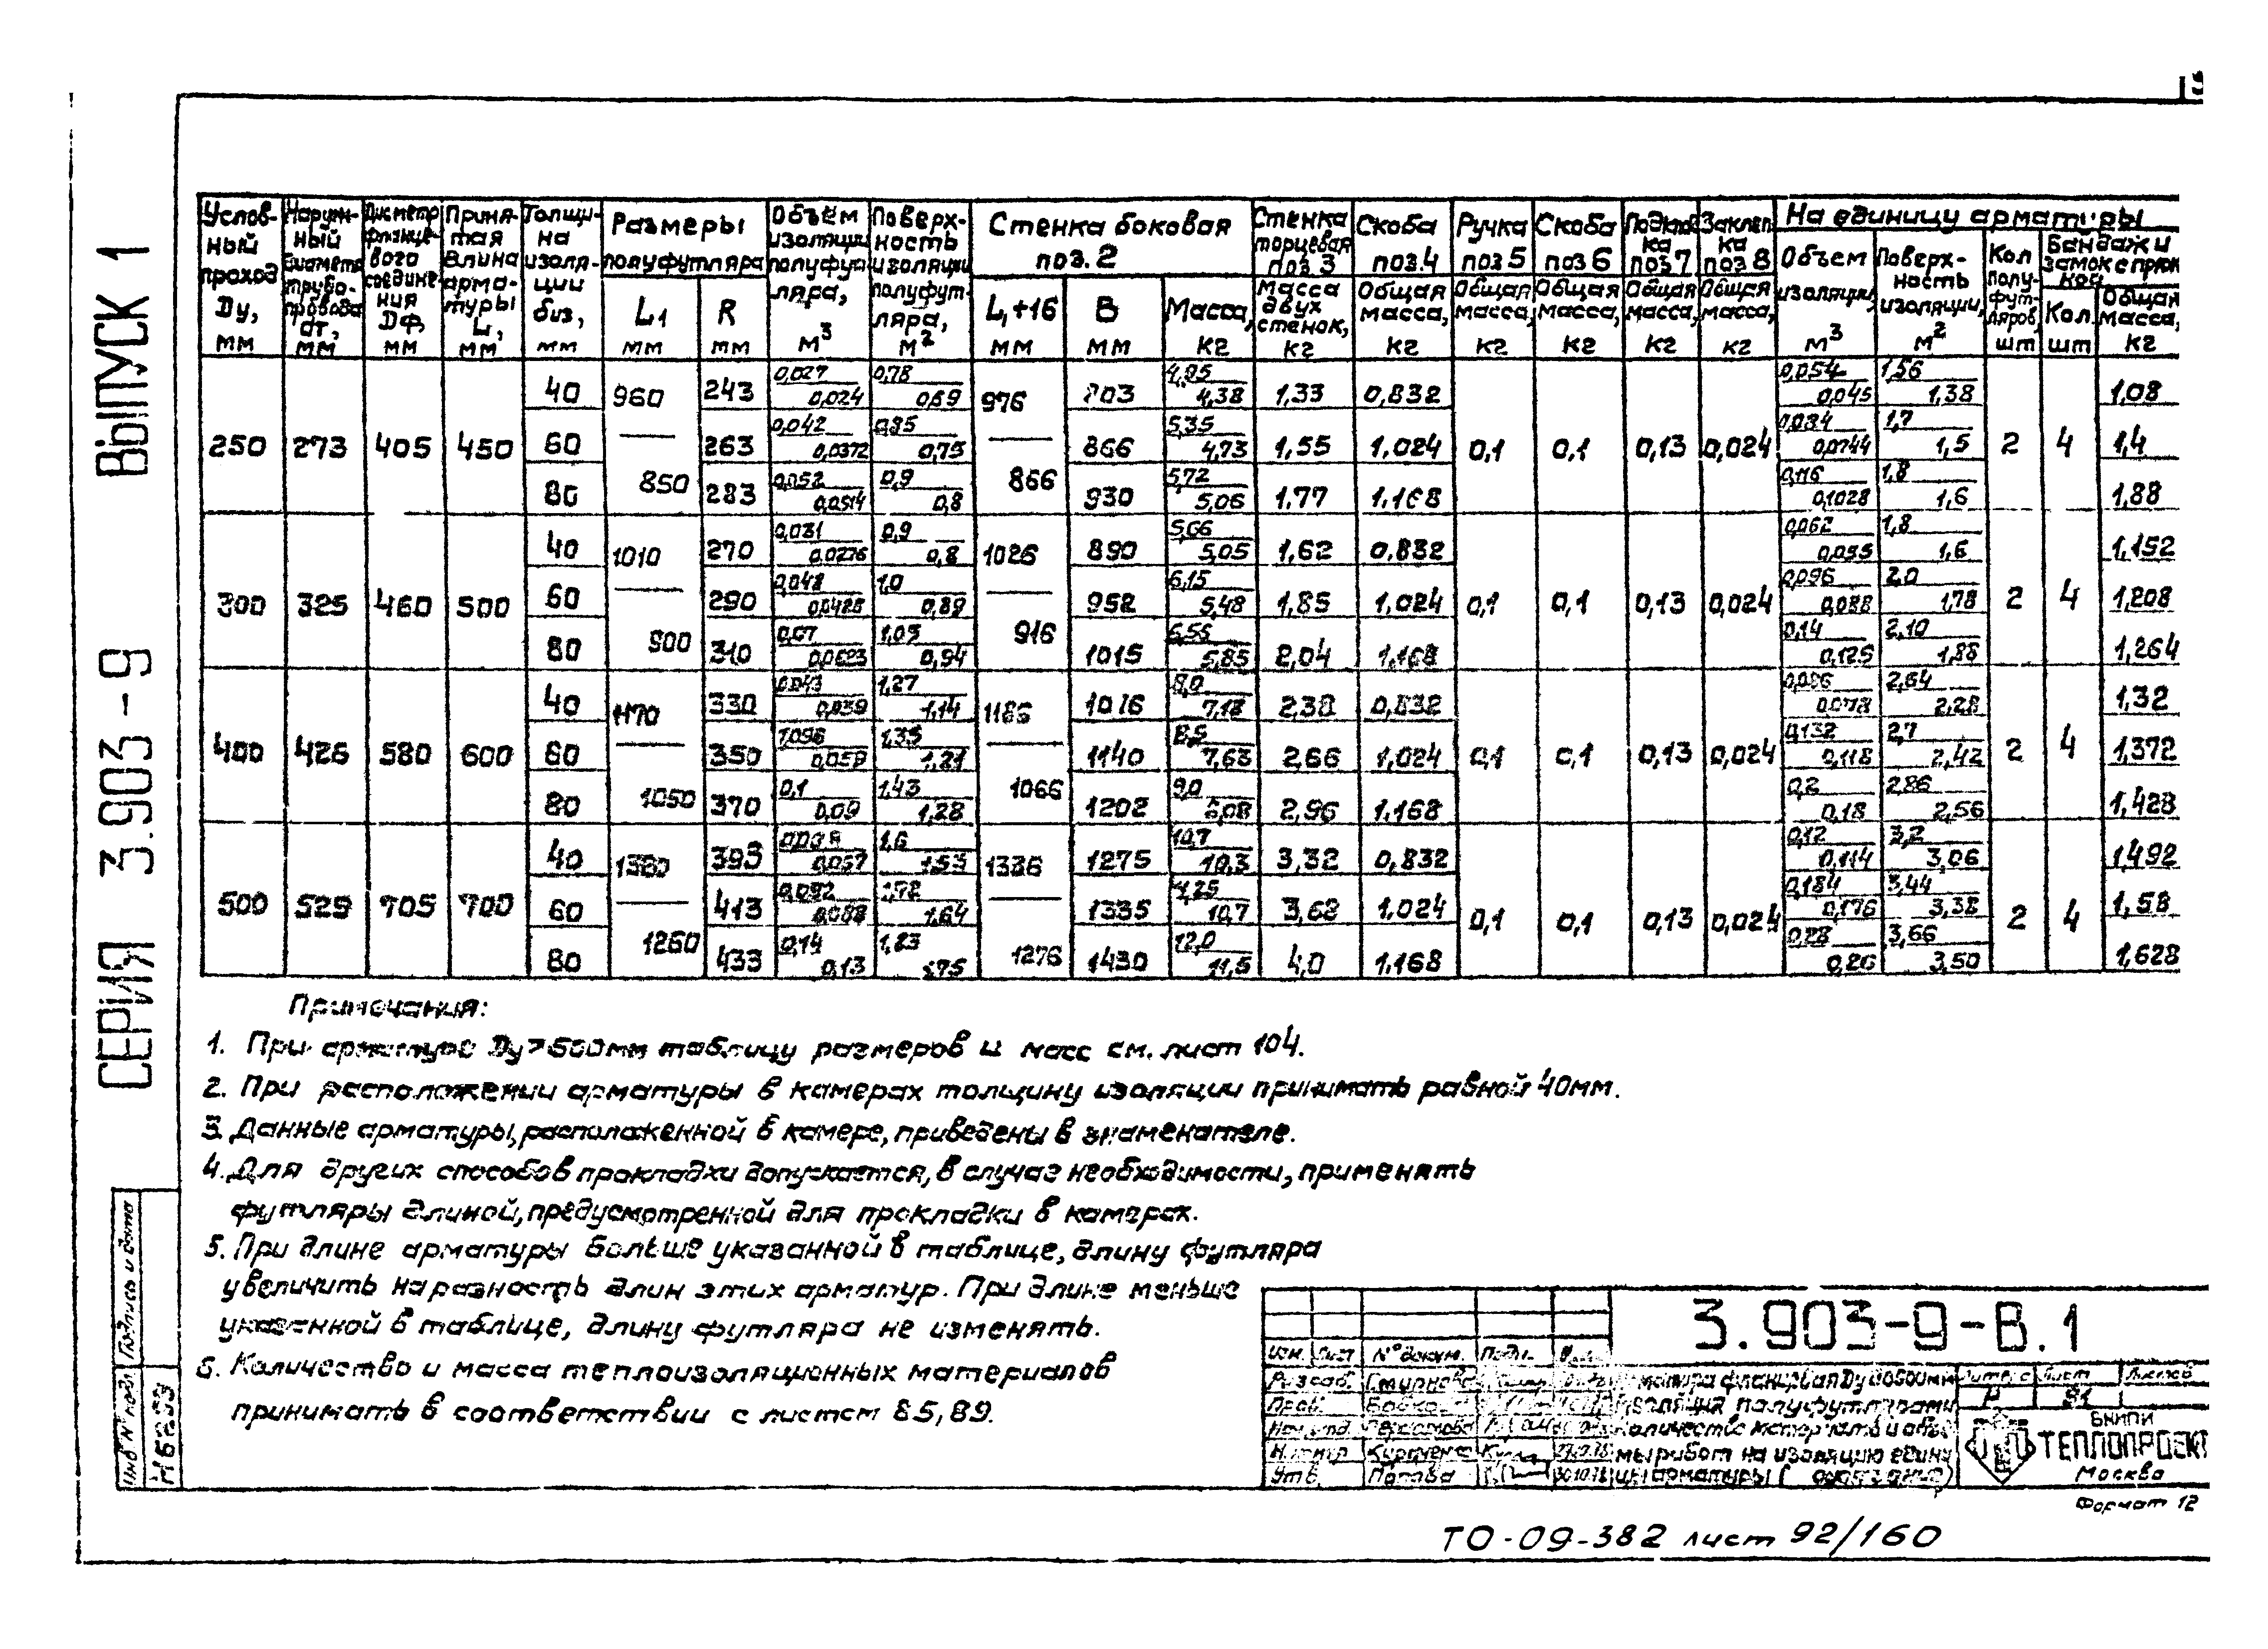 СЕРИЯ 3.903-9 ВЫПУСК 1
Условный проход Dу, мм
Наружный диаметр трубопровода dт, мм
Диаметр фланцевого соединения Dф, мм
Принятая длина арматуры L, мм
Толщина изоляции биз, мм
Размеры полуфутляра
L1 мм
R мм
Объём изоляции полуфутляра, м3
Поверхность изоляции полуфутляра, м2
Стенка боковая поз. 2
L1+16 мм
В мм
Масса, кг
Стенка торцевая поз 3 Масса двух стенок, кг
Скоба поз.4 Общая масса, кг
Ручка поз 5 Общая масса, кг
Скоба поз 6 Общая масса, кг
Подкладка поз 7 Общая масса, кг
Заклепка поз 8 Общая масса, кг
На единицу арматуры
Объем изоляции, м3
Поверхность изоляции, м2
Кол полуфутляров, шт
Бандажи замок с пряжкой
Кол. шт
Общая масса, кг
250 273 405 450 0,1 0,1 0,13 0,024 2 4
960 850 976 866
40 243 0,027 0,024 0,78 0,69 803 4,95 4,38 1,33 0,832 0,054 0,045 1,56 1,38 1,08
60 263 0,042 0,0372 0,85 0,75 866 5,35 4,73 1,55 1,024 0,084 0,0744 1,7 1,5 1,4
80 283 0,052 0,0514 0,9 0,8 930 5,72 5,06 1,77 1,168 0,116 0,1028 1,8 1,6 1,88
300 325 460 500 0,1 0,1 0,13 0,024 2 4
1010 900 1026 916
40 270 0,031 0,0276 0,9 0,8 890 5,66 5,05 1,62 0,832 0,062 0,055 1,8 1,6 1,152
60 290 0,048 0,0428 1,0 0,89 952 6,15 5,48 1,85 1,024 0,096 0,088 2,0 1,78 1,208
80 310 0,07 0,0623 1,05 0,94 1015 6,55 5,85 2,04 1,168 0,14 0,125 2,10 1,88 1,264
400 426 580 600 0,1 0,1 0,13 0,024 2 4
1170 1050 1186 1066
40 330 0,043 0,039 1,27 1,14 1076 8,0 7,18 2,38 0,832 0,086 0,078 2,54 2,28 1,32
60 350 0,059 1,35 1,21 1140 8,5 7,63 2,66 1,024 0,132 0,118 2,7 2,42 1,372
80 370 0,1 0,09 1,43 1,28 1202 9,0 2,96 1,168 0,2 0,18 2,86 2,56 1,428
500 529 705 700 0,1 0,1 0,13 0,024 2 4
1260 1336 1276
40 393 0,057 1,6 1,53 1275 10,7 10,3 3,32 0,832 0,12 0,114 3,2 3,06 1,492
60 413 0,092 0,088 1,64 1335 10,7 3,68 1,024 0,184 0,176 3,44 3,38 1,58
80 433 0,14 0,13 1,83 1430 12,0 11,5 4,0 1,168 0,28 0,26 3,66 3,50 1,628
Примечания:
1. При арматуре Dу>500мм таблицу размеров и масс см. лист 104.
2. При расположении арматуры в камерах толщину изоляции принимать равной 40мм.
3. Данные арматуры, расположенной в камере, приведены в знаменателе.
4. Для других способов прокладки допускается, в случае необходимости, применять
футляры длиной, предусмотренной для прокладки в камерах.
5. При длине арматуры больше указанной в таблице, длину футляра
увеличить на разность длин этих арматур. При длине меньше
указанной в таблице, длину футляра не изменять.
6. Количество и масса теплоизоляционных материалов
принимать в соответствии с листом 85, 89.
Инв № подл Подпись и дата
3.903-9-В.1
Изм. Лист № докум. Подп.
Разраб. Смирнова
Пров.
Н.контр Курченко
Утв. Попова 30.10.78
Арматура фланцевая
Изоляция полуфутлярами
Количество материалов и объе-
мы работ на изоляцию едини-
цы арматуры
Лист Листов
Р 91
ВНИПИ
ТЕПЛОПРОЕКТ
Москва
Формат 12
ТО-09-382 лист 92/160